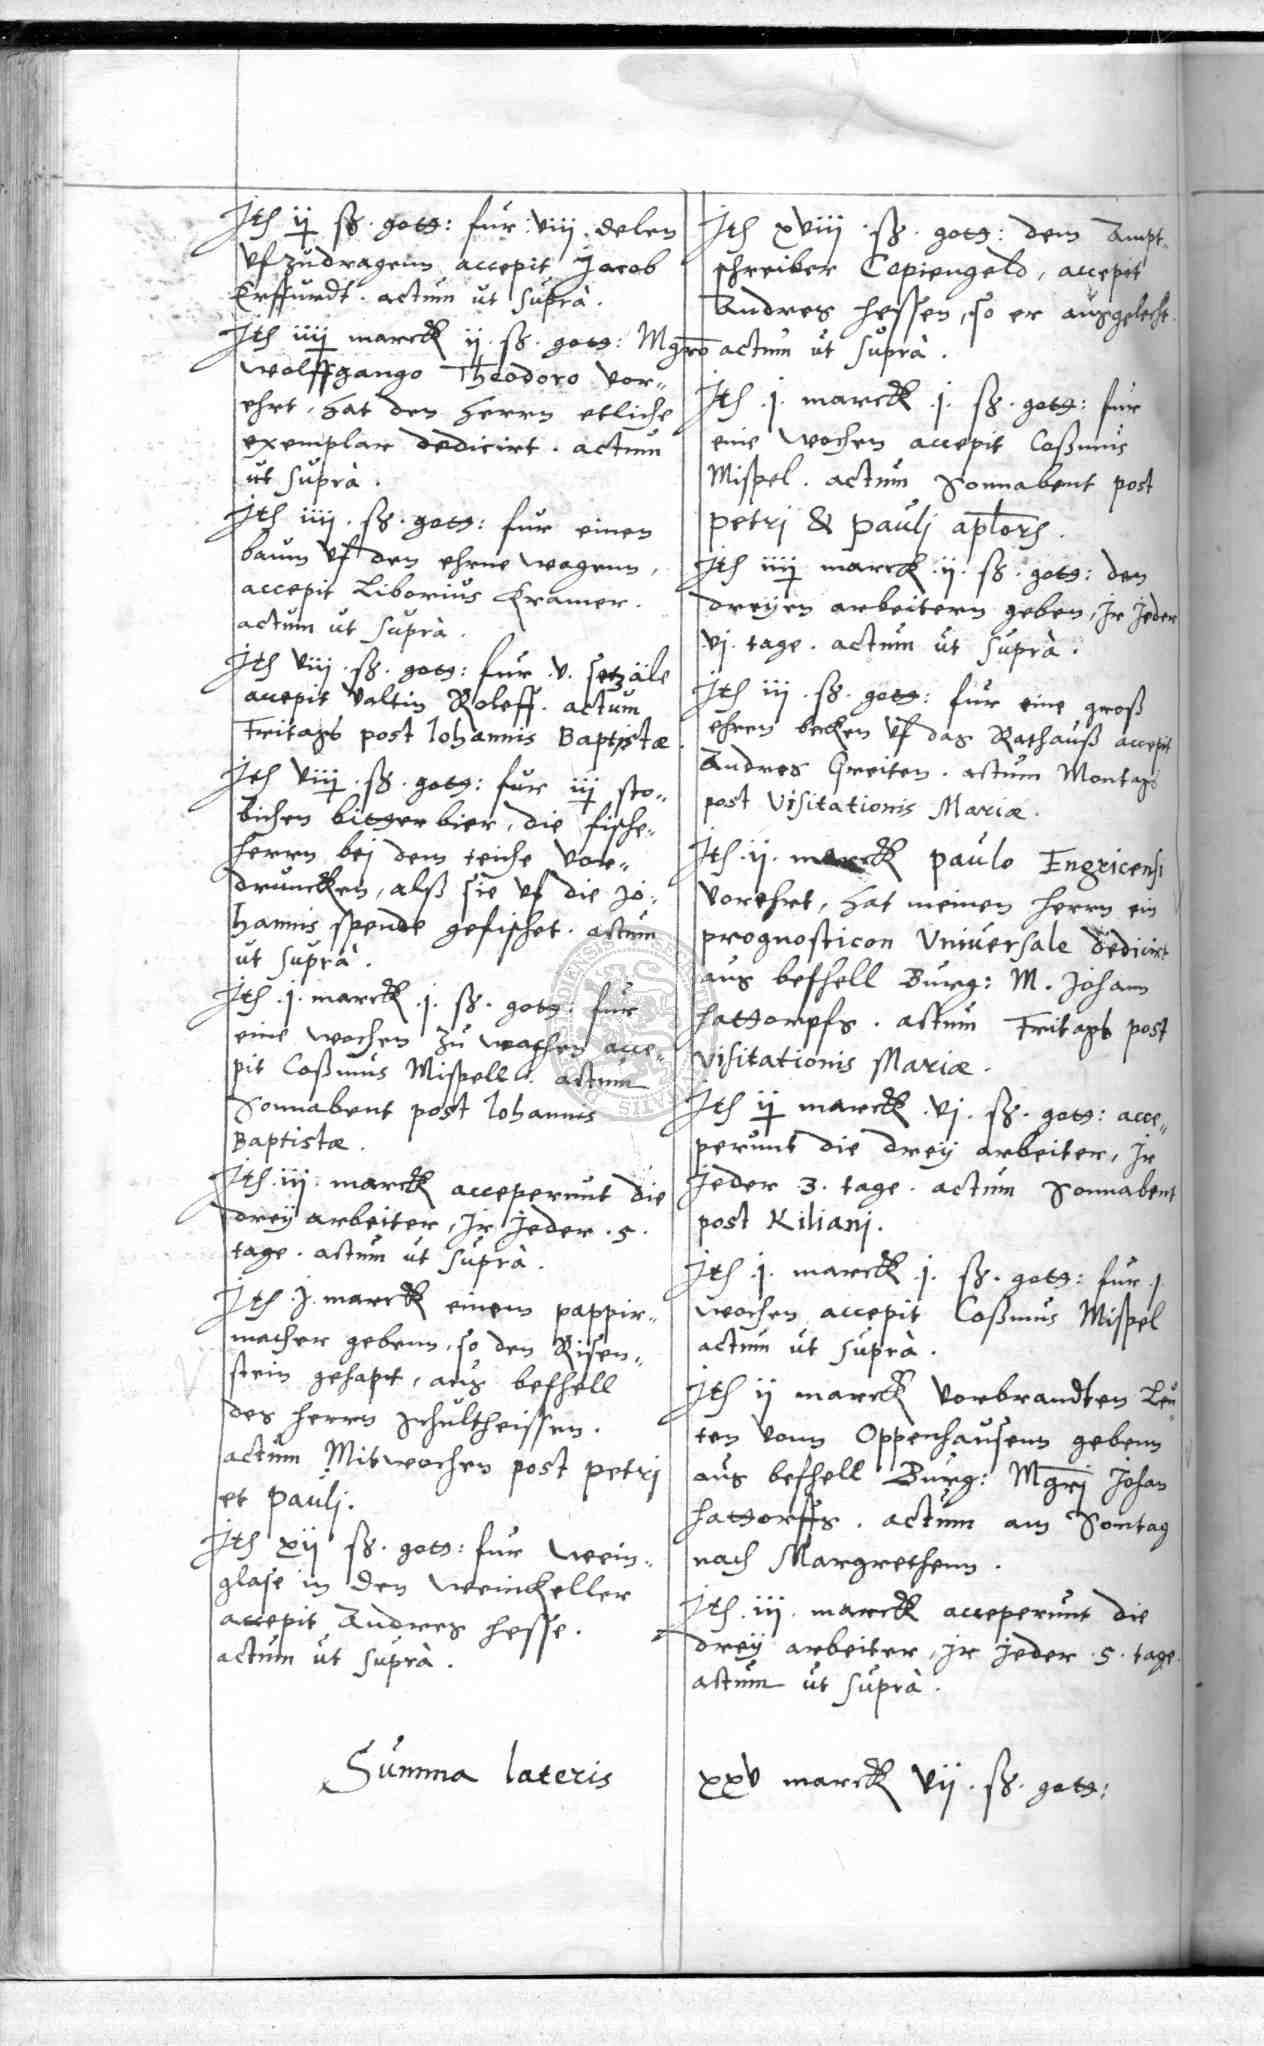 Ith ij ß. gotts: fur viij delen
uf zudragenn accepit Jacob
Erffurdt. actum ut suprà.
Ith iiij marck ij. ß. gotts: Mgro
Wolffgango Theodoro vor„
ehrt, hat den herrn etliche
exemplar dedicirt. actum
ut suprà.
Ith iiij. ß. gotts: fur einen
baum uf den ehrne wagenn,
accepit Liborius Kramer.
actum ut suprà.
Ith viij. ß. gotts: fur .v. setzäle
accepit Valtin Roleff. actum
Fritags post Iohannis Baptistæ.
Ith viij. ß. gotts: fur iij sto„
bichen bitter bier, die fische„
herrn bej dem teiche vor„
druncken, alß sie uf die Jo„
hannis spende gefischet. actum
ut suprà.
Ith .j. marck .j. ß. gotts: fur
eine wochen zu wachen acce„
pit Coßmus Mispell. actum
Sonnabent post Iohannis
Baptistæ.
Ith .iij. marck acceperunt die
dreÿ arbeiter, Jr Jeder .5.
tage. actum ut suprà.
Ith .j. marck einem pappir„
macher gebenn, so den Risen„
stein gehapt, aus befhell
des herrn Schultheissen.
actum Mitwochen post petrj
et paulj.
Ith xij ß. gotts: fur wein„
glase in den weinkeller
accepit Andres Hesse.
actum ut suprà.
Ith xviij ß. gotts: dem Ampt„
schreiber Copiengeld, accepit
Andres Hessen, so er ausgelecht.
actum ut suprà.
Ith .j. marck .j. ß. gotts: fur
eine wochen accepit Coßmus
Mispel. actum Sonnabent post
petrj & paulj aplorh.
Ith iiij marck .ij. ß. gotts: den
dreÿen arbeitern geben, Jr Jeder
vj. tage. actum ut suprà.
Ith iij. ß. gotts: fur eine groß
ehren becken uf das Rathauß accepit
Andres Greiten. actum Montags
post Visitationis Mariæ.
Ith .ij. marck paulo Engricensi
vorehrt, hat meinen herrn ein
prognosticon Universale dedicirt
aus befhell Burg: M. Johann
Hattorpfs. actum Fritags post
Visitationis Mariæ.
Ith ij marck .vj. ß. gotts: acce„
perunt die dreÿ arbeiter, Jr
Jeder 3. tage. actum Sonnabent
post Kilianj.
Ith .j. marck .j. ß. gotts: fur .j.
wochen accepit Coßmus Mispel
actum ut suprà.
Ith ij marck vorbrandten Leu„
ten vonn Oppenhausenn gebenn
aus befhell Burg: Mgrj Johan
Hattorffs. actum am Sontag
nach Margrethenn.
Ith .iij. marck acceperunt die
dreÿ arbeiter, Jr Jeder .5. tage.
actum ut suprà.
Summa lateris
xxv marck vij. ß. gotts: